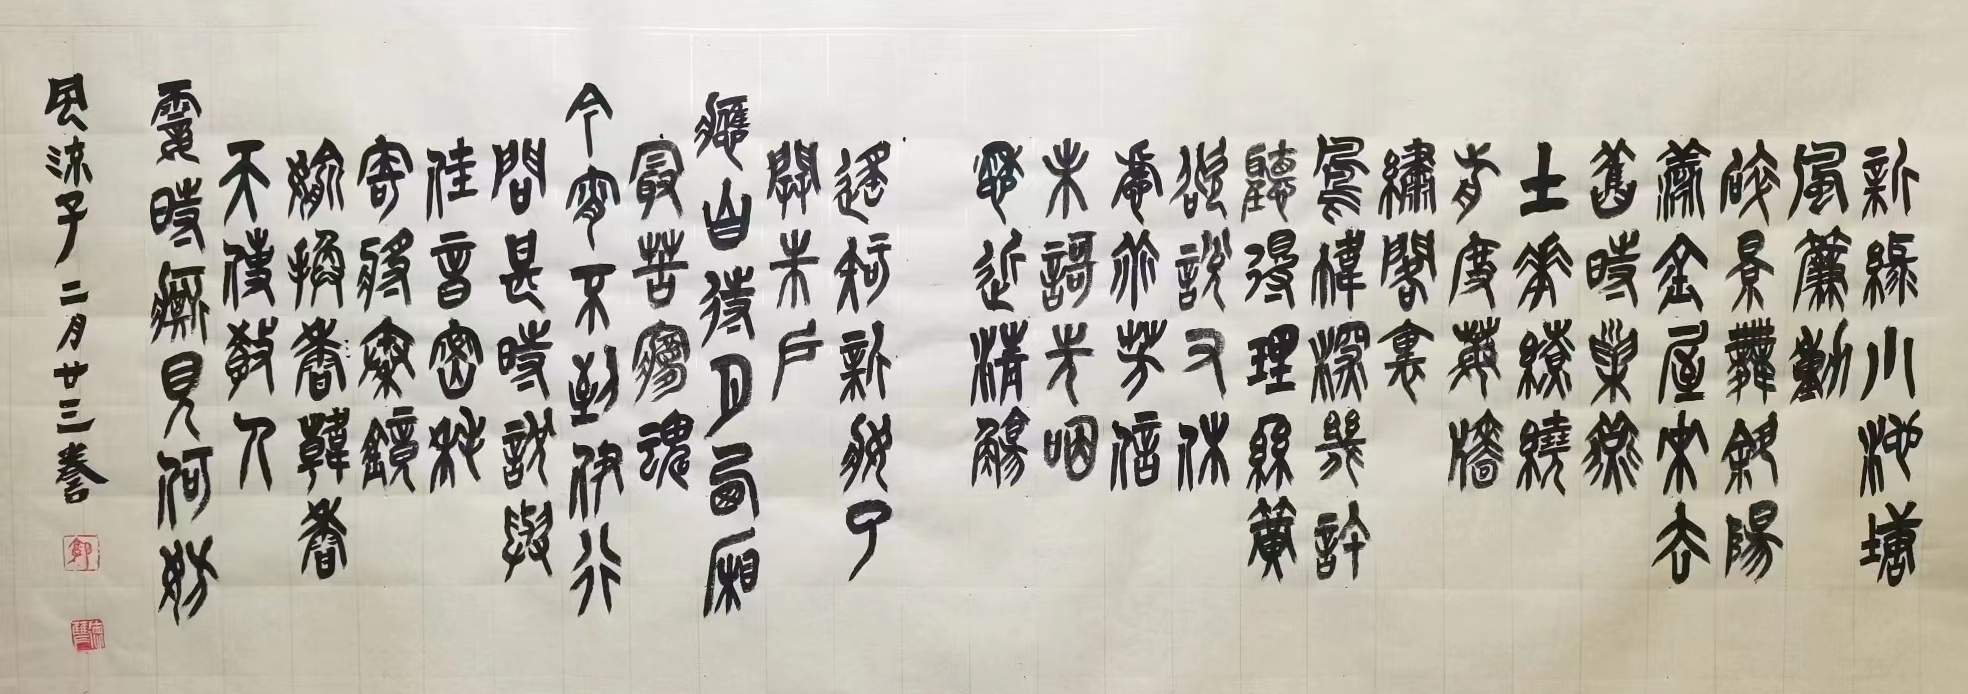 新綠小池塘
風簾動
碎景舞斜陽
羨金屋去來
舊時巢燕
土花繚繞
前度莓牆
繡閣裏
鳳幃深幾許
聽得理絲簧
欲說又休
慮乖芳信
未歌先咽
愁近清觴
遙知新妝了
開朱戶
應自待月西廂
最苦夢魂
今宵不到伊行
問甚時說與
佳音密耗
寄將秦鏡
媮換香韓香
天便教人
霎時廝見何妨
風流子 二月廿三誊